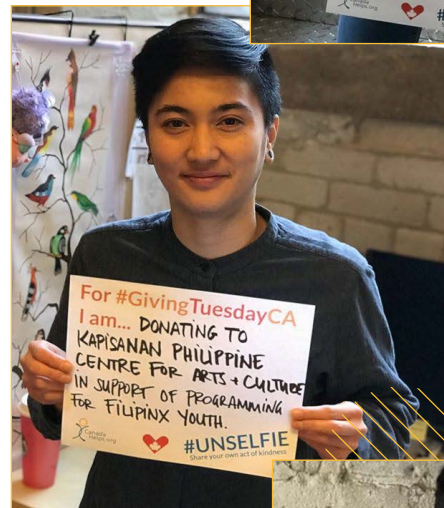 For #GivingTuesdayCA
I am... DONATING TO
KAPISANAN PHILIPPINE
CENTRE FOR ARTS + CULTURE
IN SUPPORT OF PROGRAMMING
FOR FILIPINX YOUTH.
Canada
Helps.org
#UNSELFIE
Share your own act of kindness